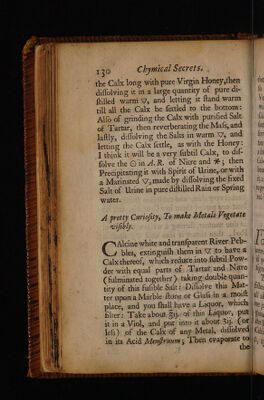 130 Chymical Secrets.
the Calx long with pure Virgin Honey, then
dissolving it in a large quantity of pure di-
stilled warm 🜄, and letting it stand warm
till all the Calx be settled to the bottom:
Also of grinding the Calx with purified Salt
of Tartar, then reverberating the Mass, and
lastly, dissolving the Salts in warm 🜄, and
letting the Calx settle, as with the Honey:
I think it will be a very subtil Calx, to dis-
solve the ☉ in A. R. of Nitre and ✶; then
Precipitating it with Spirit of Urine, or with
a Marinated 🜄, made by dissolving the fixed
Salt of Urine in pure distilled Rain or Spring
water.
A pretty Curiosity, To make Metals Vegetate
visibly.
CAlcine white and transparent River Peb-
bles, extinguish them in 🜄 to have a
Calx thereof, which reduce into subtil Pow-
der with equal parts of Tartar and Nitre
(fulminated together) taking double quan-
tity of this fusible Salt: Dissolve this Mat-
ter upon a Marble stone or Glass in a moist
place, and you shall have a Liquor, which
filter: Take about ℥ij. of this Liquor, put
it in a Viol, and put into it about ℥ij. (or
less) of the Calx of any Metal, dissolved
in its Acid Menstruum; Then evaporate to
the